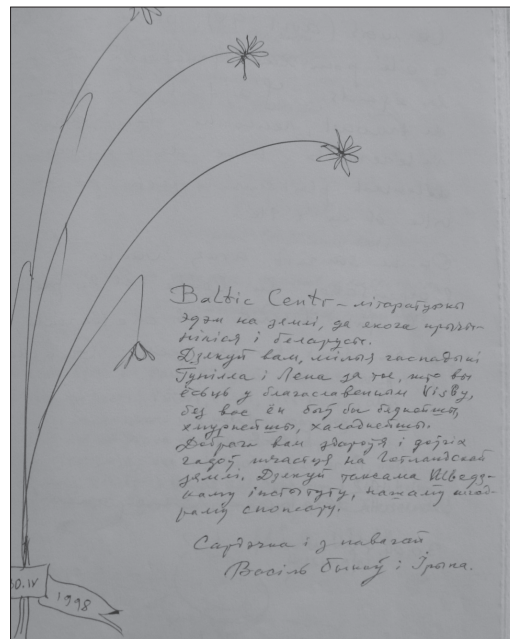 Baltic Centr – літаратурны
эдэм на зямлі, да якога прычы-
ніліся і беларусы.
Дзякуй вам, мілыя гаспадыні
Гунілла і Лена за тое, што вы
ёсьць у благаславенным Visby,
без вас ён быў бы бяднейшы,
хмурнейшы, халаднейшы.
Добрага вам здароўя і доўгіх
гадоў шчасця на Готландскай
зямлі. Дзякуй таксама Шведз-
каму інстытуту, нашаму шчод-
раму спонсару.
Сардэчна і з павагай
Васіль Быкаў і Ірына.
30.IV
1998